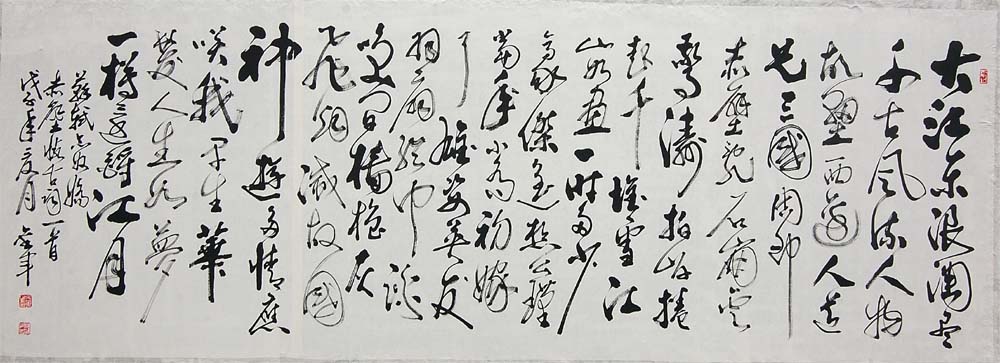 大江东浪淘尽
千古风流人物
故垒西边人道
是三國周郎
赤壁乱石崩云
惊涛拍岸捲
起千堆雪江
山如画一时多少
豪傑遥想公瑾
當年小乔初嫁
了雄姿英发
羽扇纶巾谈
笑间樯橹灰
飞烟滅故國
神遊多情應
咲我早生華
髮人生如夢
一樽还酹江月
蘇轼念奴嬌
赤壁怀古词一首
戊子年夏月